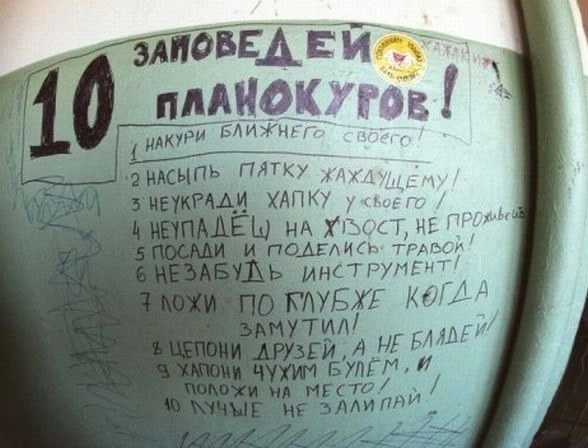 10 ЗАПОВЕДЕЙ
ПЛАНОКУРОВ!
1 НАКУРИ БЛИЖНЕГО СВОЕГО!
2 НАСЫПЬ ПЯТКУ ЖАЖДУЩЕМУ!
3 НЕУКРАДИ ХАПКУ У СВОЕГО!
4 НЕУПАДЁШ НА ХВОСТ, НЕ ПРОЖИВЕШЬ
5 ПОСАДИ И ПОДЕЛИСЬ ТРАВОЙ!
6 НЕЗАБУДЬ ИНСТРУМЕНТ!
7 ЛОЖИ ПО ГЛУБЖЕ КОГДА
ЗАМУТИЛ!
8 ЦЕПОНИ ДРУЗЕЙ, А НЕ БЛЯДЕЙ!
9 ХАПОНИ ЧУЖИМ БУЛЁМ, И
ПОЛОЖИ НА МЕСТО!
10 ЛУЧЫЕ НЕ ЗАЛИПАЙ!